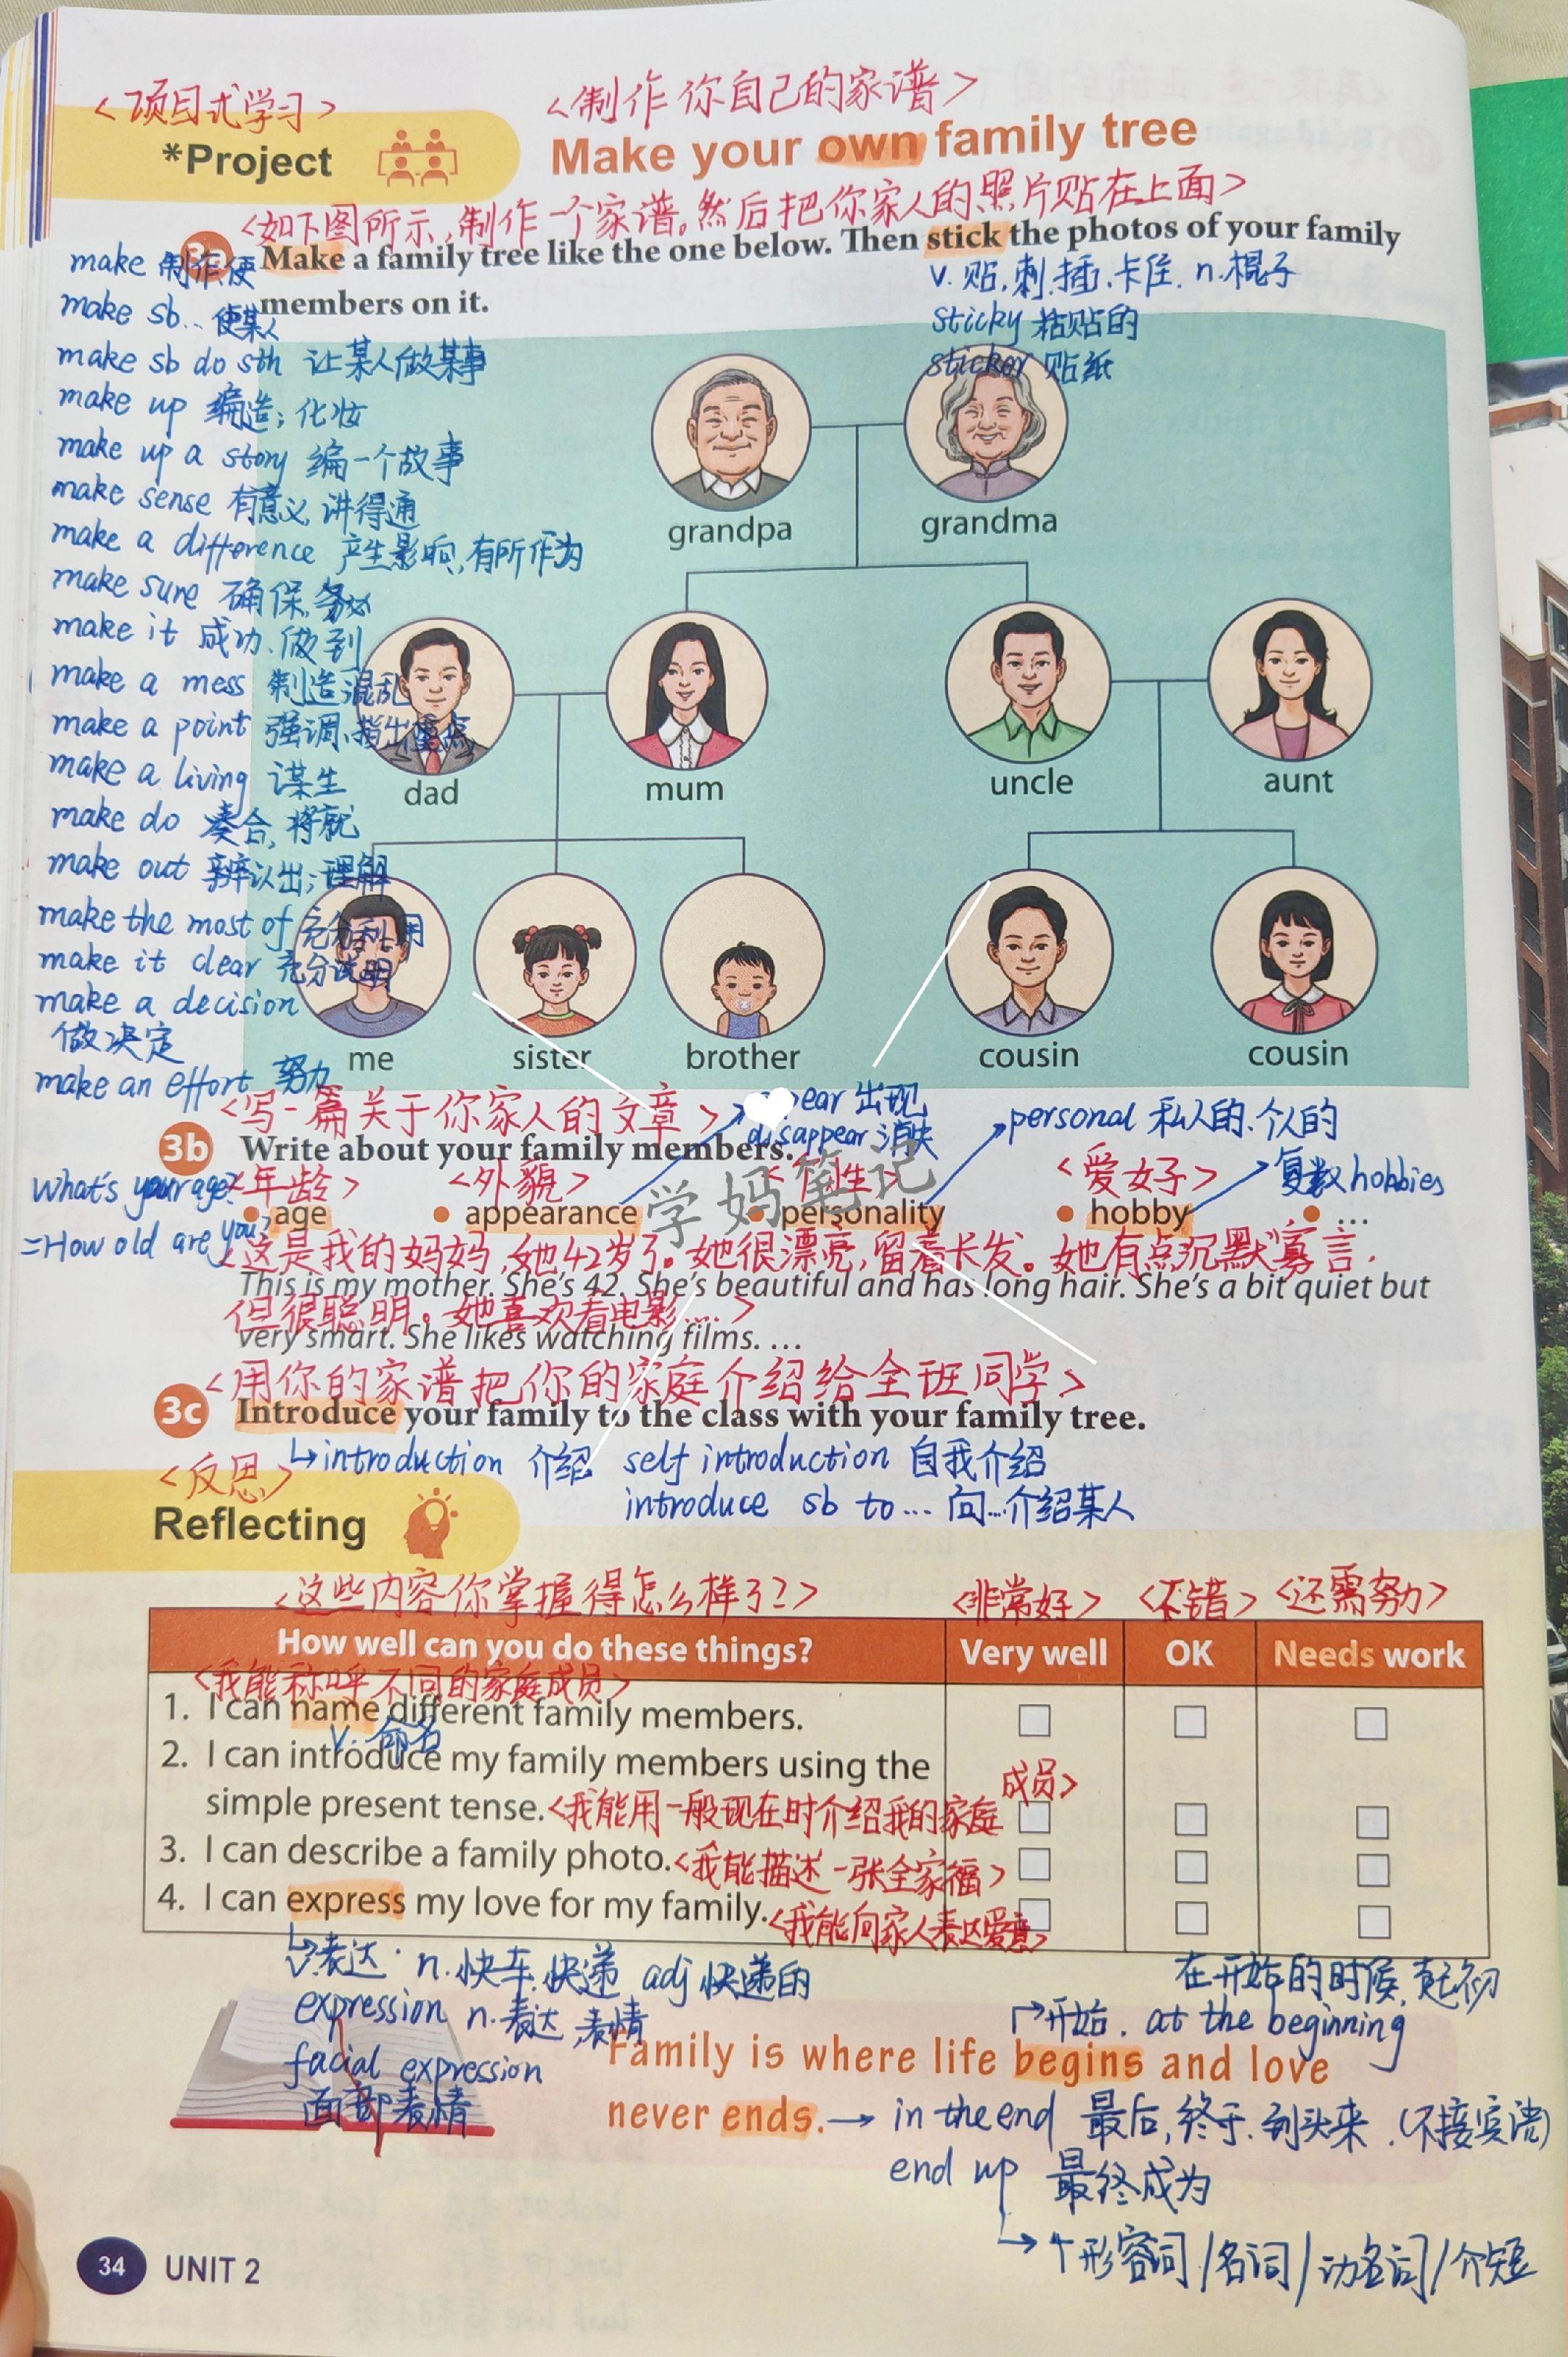 <项目式学习>
<制作你自己的家谱>
*Project
Make your own family tree
<如下图所示,制作一个家谱。然后把你家人的照片贴在上面>
3a Make a family tree like the one below. Then stick the photos of your family
members on it.
v. 贴,刺.插、卡住. n.棍子
sticky 粘贴的
sticker 贴纸
make 制作,使
make sb... 使某人
make sb do sth 让某人做某事
make up 编造; 化妆
make up a story 编一个故事
make sense 有意义,讲得通
make a difference 产生影响,有所作为
make sure 确保,务必
make it 成功、做到
make a mess 制造混乱
make a point 强调、指出重点
make a living 谋生
make do 凑合,将就
make out 辨认出;理解
make the most of 充分利用
make it clear 充分说明
make a decision
做决定
make an effort 努力
grandpa
grandma
dad
mum
uncle
aunt
me
sister
brother
cousin
cousin
<写一篇关于你家人的文章>
ear 出现
disappear 消失
personal 私人的.个人的
3b Write about your family members.
What's your age?
=How old are you?
<年龄>
<外貌>
<个性>
<爱好>
复数 hobbies
• age
• appearance
• personality
• hobby
• ...
学妈笔记
<这是我的妈妈,她42岁了。她很漂亮,留着长发。她有点沉默寡言,
This is my mother. She's 42. She's beautiful and has long hair. She's a bit quiet but
但很聪明。她喜欢看电影...>
very smart. She likes watching films. ...
<用你的家谱把你的家庭介绍给全班同学>
3c Introduce your family to the class with your family tree.
introduction 介绍 self introduction 自我介绍
introduce sb to... 向...介绍某人
<反思>
Reflecting
<这些内容你掌握得怎么样了?>
<非常好>
<不错>
<还需努力>
How well can you do these things?
Very well
OK
Needs work
<我能称呼不同的家庭成员>
1. I can name different family members.
v. 命名
2. I can introduce my family members using the
simple present tense.<我能用一般现在时介绍我的家庭
成员>
3. I can describe a family photo.<我能描述一张全家福>
4. I can express my love for my family.<我能向家人表达爱意>
v.表达. n.快车.快递 adj 快递的
expression n.表达,表情
facial expression
面部表情
在开始的时候,起初
开始. at the beginning
Family is where life begins and love
never ends.→ in the end 最后,终于.到头来.(不接宾语)
end up 最终成为
+形容词/名词/动名词/介短
34 UNIT 2